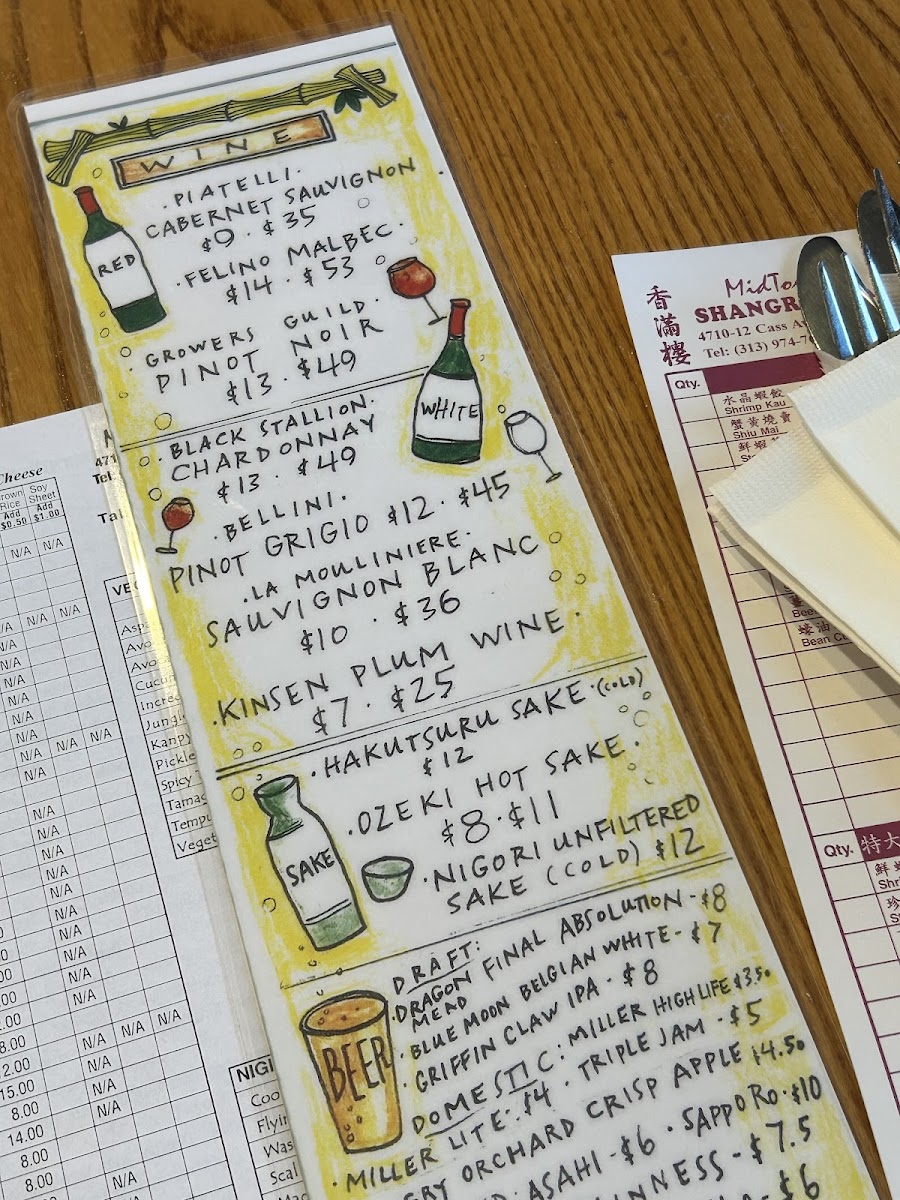 WINE
·PIATELLI·
CABERNET SAUVIGNON
$9 · $35
·FELINO MALBEC·
$14 · $53
·GROWERS GUILD·
PINOT NOIR
$13 · $49
RED
·BLACK STALLION·
CHARDONNAY
$13 · $49
WHITE
·BELLINI·
PINOT GRIGIO $12 · $45
·LA MOULINIERE·
SAUVIGNON BLANC
$10 · $36
·KINSEN PLUM WINE·
$7 · $25
·HAKUTSURU SAKE·(COLD)
$12
·OZEKI HOT SAKE·
$8·$11
·NIGORI UNFILTERED
SAKE (COLD) $12
SAKE
DRAFT:
·DRAGON MEAD FINAL ABSOLUTION-$8
·BLUE MOON BELGIAN WHITE-$7
·GRIFFIN CLAW IPA-$8
BEER
DOMESTIC: MILLER HIGH LIFE $3.50
·MILLER LITE-$4 · TRIPLE JAM-$5
ORCHARD CRISP APPLE $4.50
ASAHI-$6 · SAPPORO·$10
$7.5
$6
香滿樓
SHANGR
4710-12 Cass
Tel: (313) 974-
Qty.
水晶蝦餃
Shrimp Kau
蟹黃燒賣
Shiu Mai
鮮蝦
蠔油
Bean
Qty. 特大
Cheese
Brown Rice
Add $0.50
Soy Sheet
Add $1.00
N/A N/A
N/A N/A N/A
N/A
N/A
N/A
N/A
N/A
N/A N/A N/A
N/A
N/A
N/A
N/A
N/A
N/A
N/A
N/A
N/A
N/A N/A N/A
N/A
N/A
N/A
2.00
8.00
12.00
15.00
8.00
14.00
8.00
8.00
Tel:
Asp
Avo
Avoc
Cucu
Incre
Jungl
Kanpy
Pickle
Spicy
Tamag
Tempu
Veget
NIGI
Coo
Flyin
Was
Scal